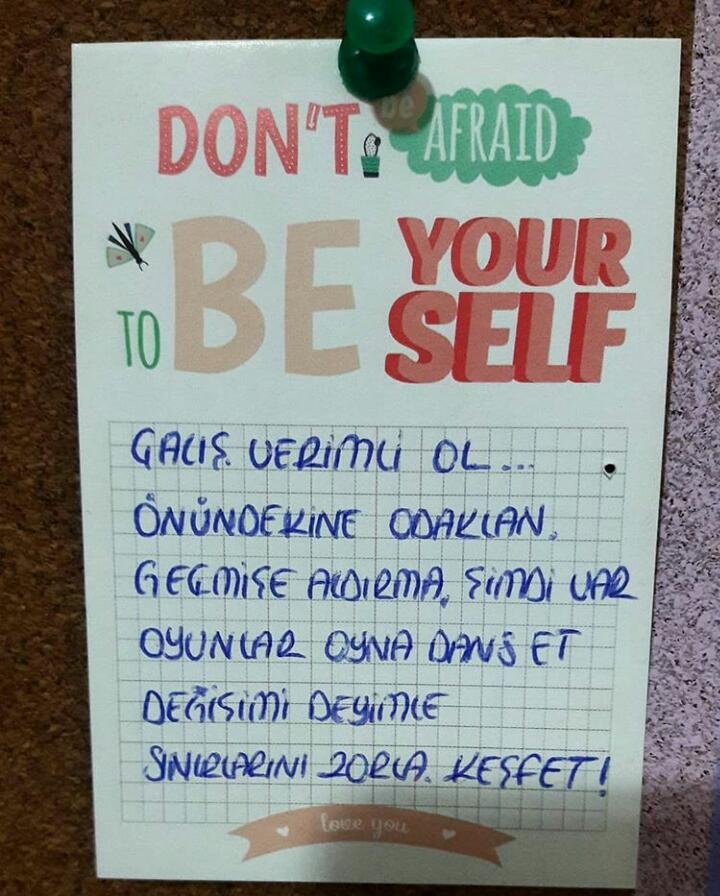 DON'T be AFRAID
TO BE YOUR SELF
ÇALIŞ. VERİMLİ OL...
ÖNÜNDEKİNE ODAKLAN.
GEÇMİŞE ALDIRMA, ŞİMDİ VAR
OYUNLAR OYNA DANS ET
DEĞİŞİMİ DEYİMLE
SINIRLARINI ZORLA. KEŞFET!
love you